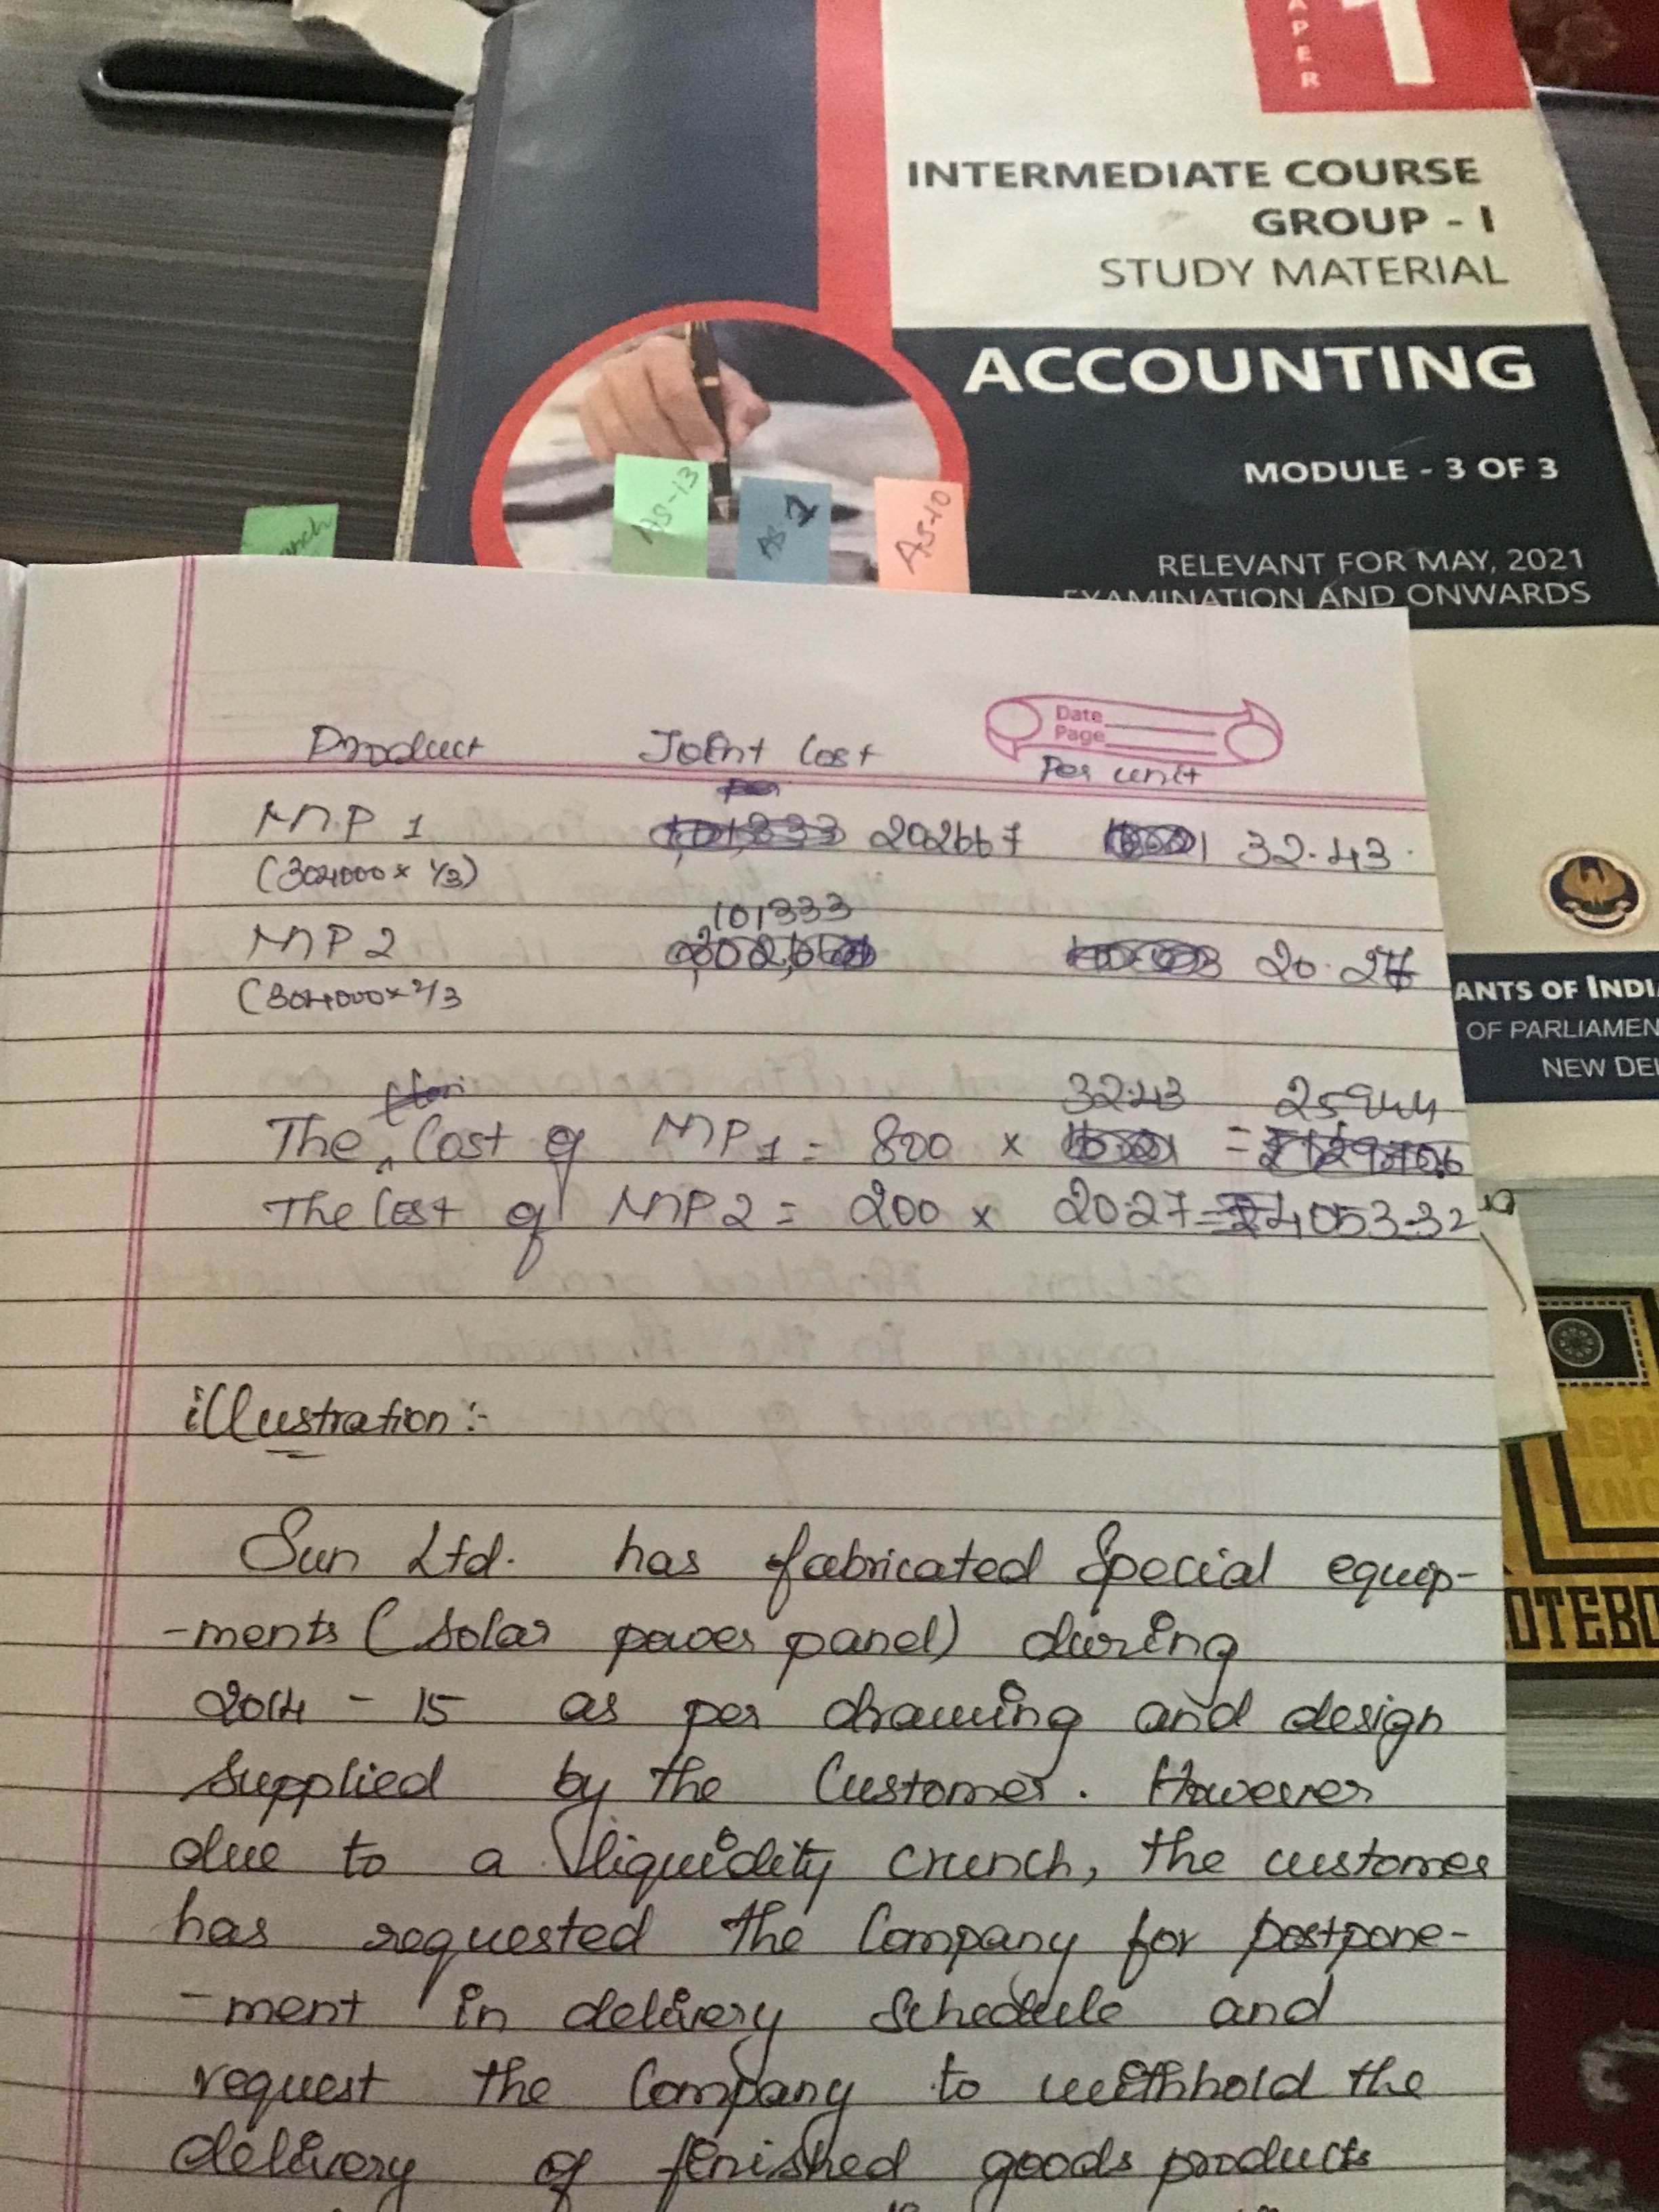 PAPER
1
INTERMEDIATE COURSE
GROUP - I
STUDY MATERIAL
ACCOUNTING
MODULE - 3 OF 3
RELEVANT FOR MAY, 2021
EXAMINATION AND ONWARDS
AS-13
AS-1
AS-10
ANTS OF INDIA
OF PARLIAMEN
NEW DEL
Date
Page
Product Joint Cost Per unit
MP 1 202667 32.43
(304000 x 1/3)
101333
MP2 20.27
(304000 x 2/3
32.43 25944
The Cost of MP1 = 800 x =
The Cost of MP2 = 200 x 20.27 = 4053.32
illustration :-
Sun Ltd. has fabricated Special equip-
-ments (Solar power panel) during
2014 - 15 as per drawing and design
Supplied by the Customer. However
due to a liquidity crunch, the customer
has requested the Company for postpone-
-ment in delivery Schedule and
request the Company to withhold the
delivery of finished goods products
OTEBO